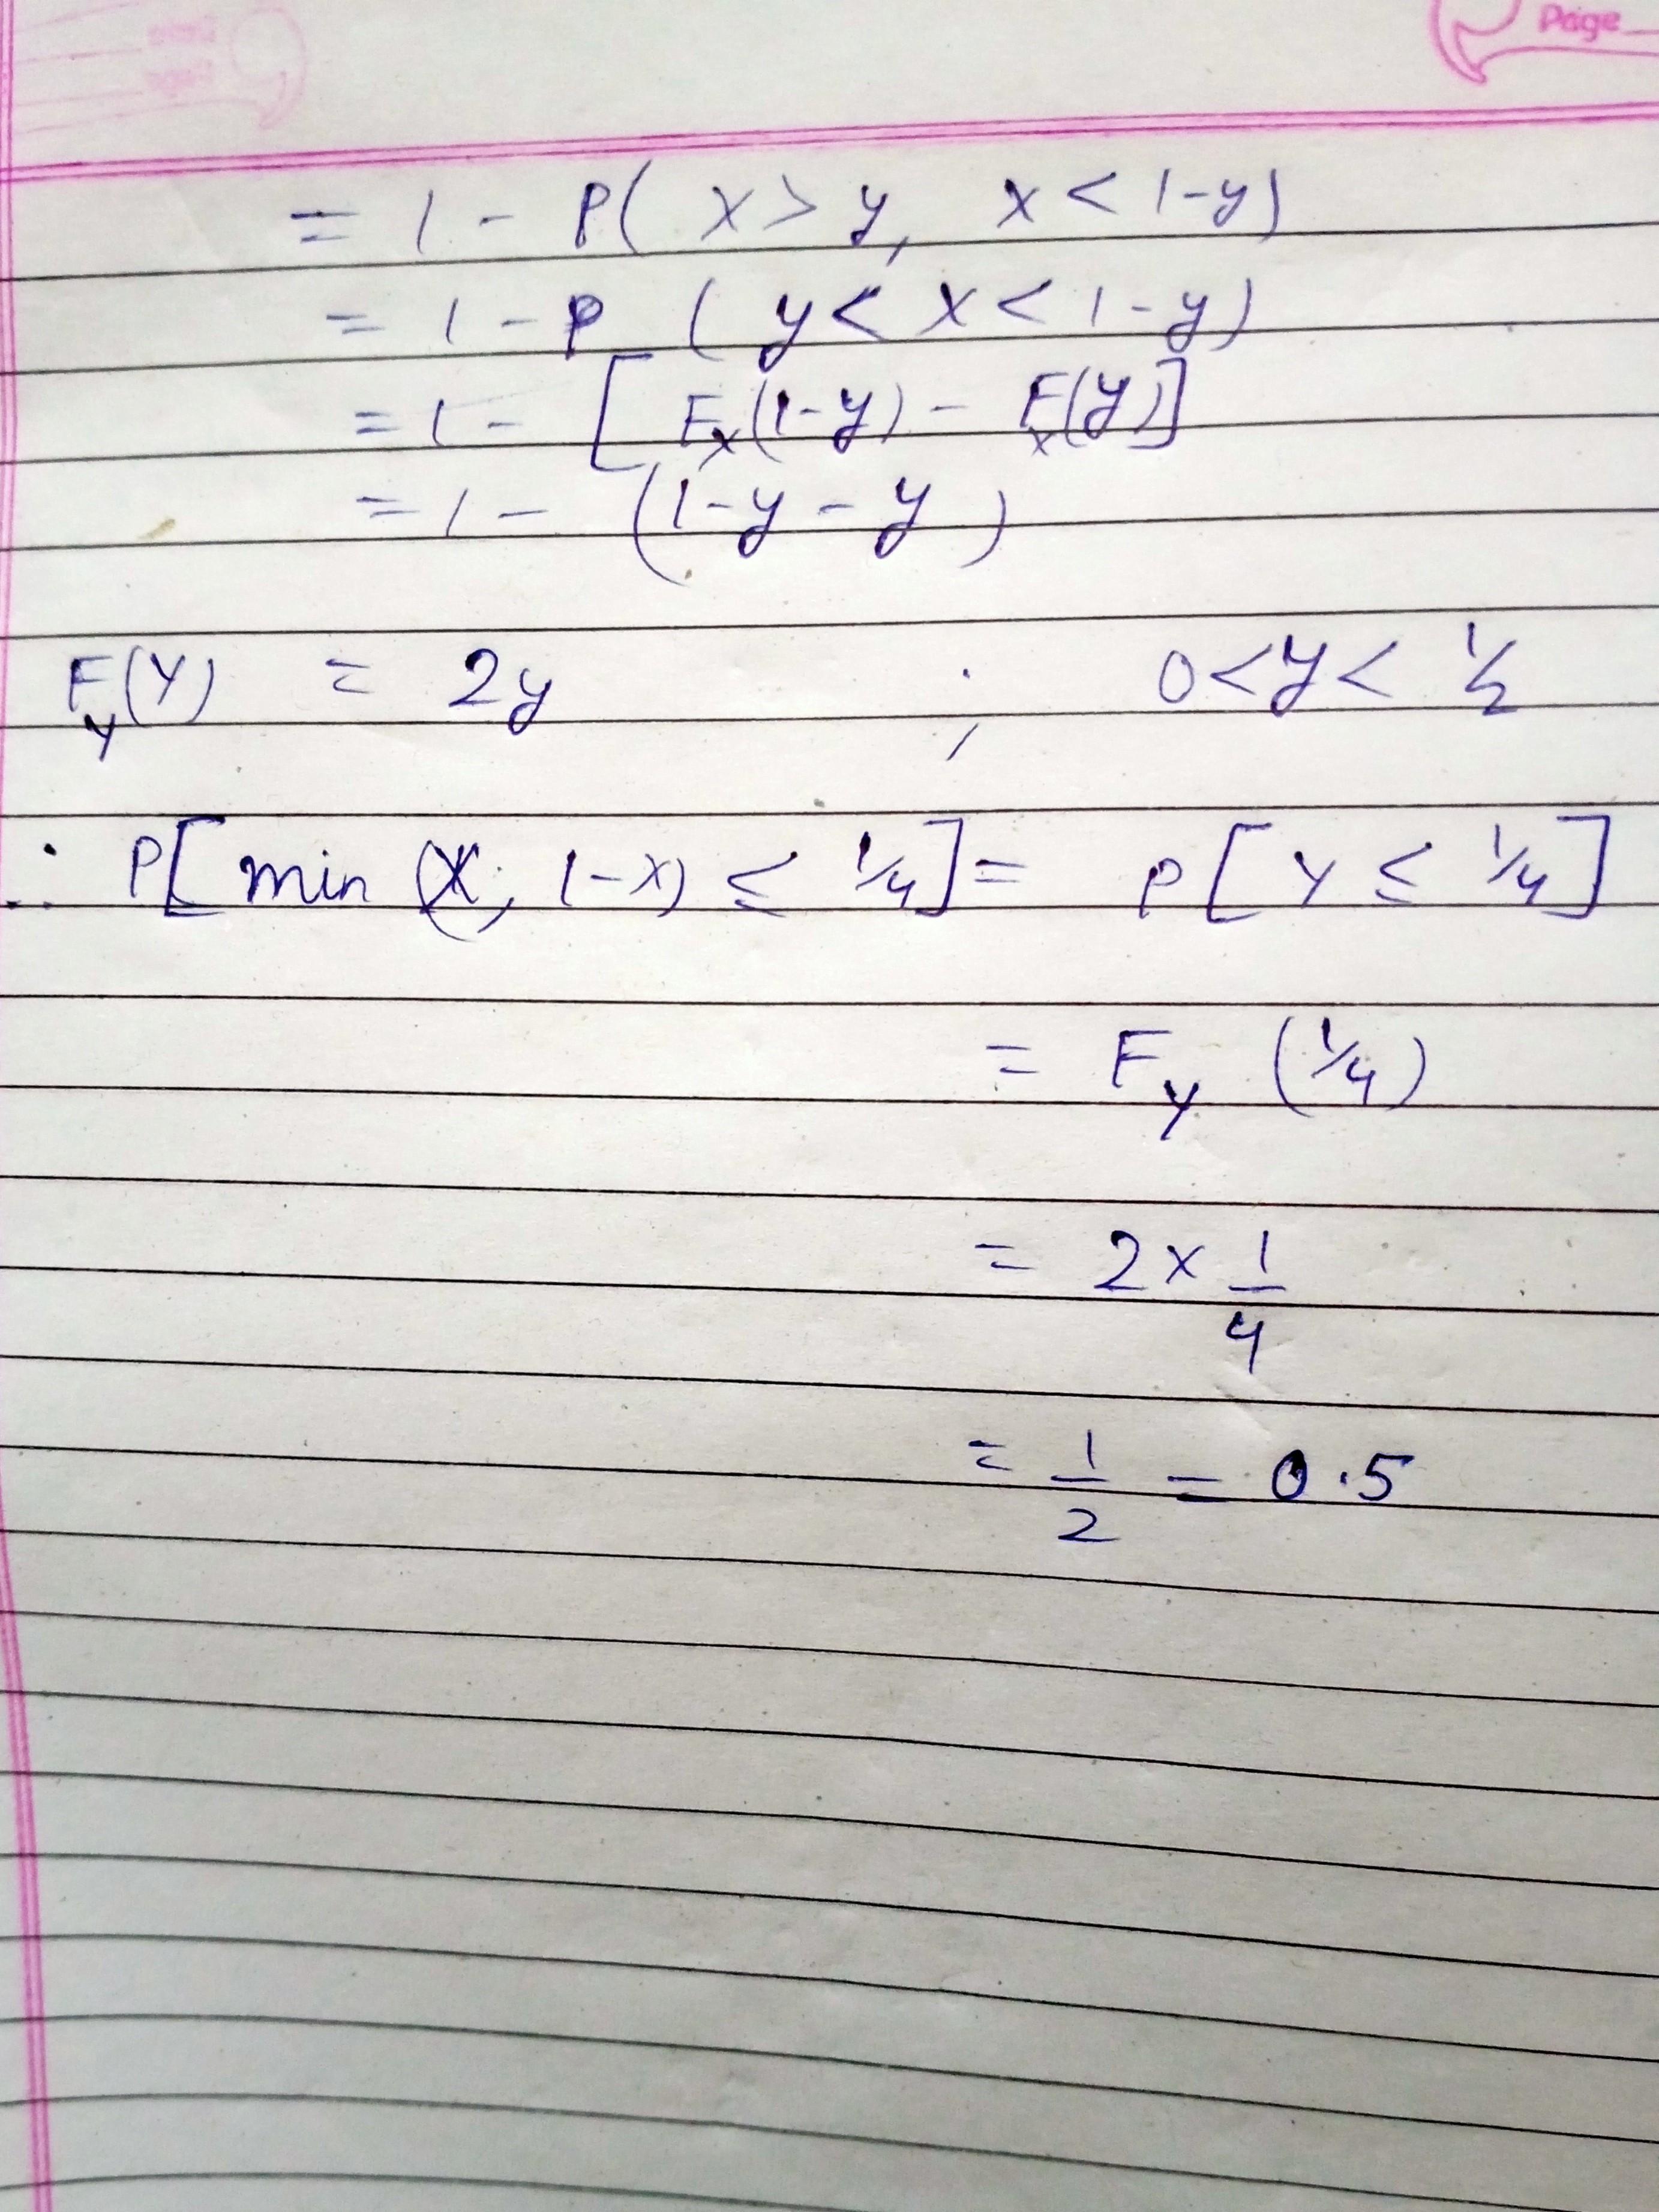 Page
= 1 - P( X > y, X < 1-y)
= 1 - P ( y < X < 1-y)
= 1 - [ F_X(1-y) - F_X(y)]
= 1 - (1-y-y)
F_Y(Y) = 2y ; 0<y< 1/2
∴ P[min (X, 1-X) ≤ 1/4] = P[ Y ≤ 1/4]
= F_Y (1/4)
= 2 × 1/4
= 1/2 = 0.5